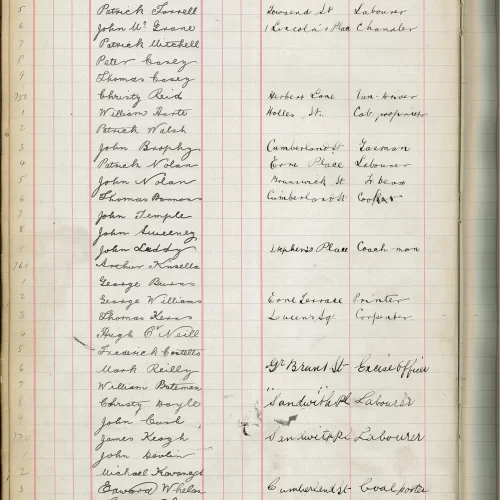 5 Patrick Farrell Townsend St Labourer
6 John McGrane 1 Lincoln's Place Chandler
7 Patrick Mitchell
8 Peter Casey
9 Thomas Casey
750 Christy Reid Herbert Lane Van-driver
1 William Harte Holles St. Cab proprietor
2 Patrick Walsh
3 John Brophy Cumberland St Gasman
4 Patrick Nolan Erne Place Labourer
5 John Nolan Brunswick St
6 Thomas Cumberland St
7 John Temple
8 John Sweeney
9 John Luddy Stephens Place Coachman
760 Arthur Kinsella
1 George Burns
2 George Williams Erne Terrace Printer
3 Thomas Kerns Queens Sq. Carpenter
4 Hugh O'Neill
5 Frederick Costello
6 Mark Reilly Gt Brunt St Excise Officer
7 William Bateman
8 Christy Doyle "Sandwith Pl Labourer
9 John Cush
770 James Keogh Sandwith Pl Labourer
1 John Devlin
2 Michael Kavanagh
3 Edward Whelan Cumberland St Coalporter